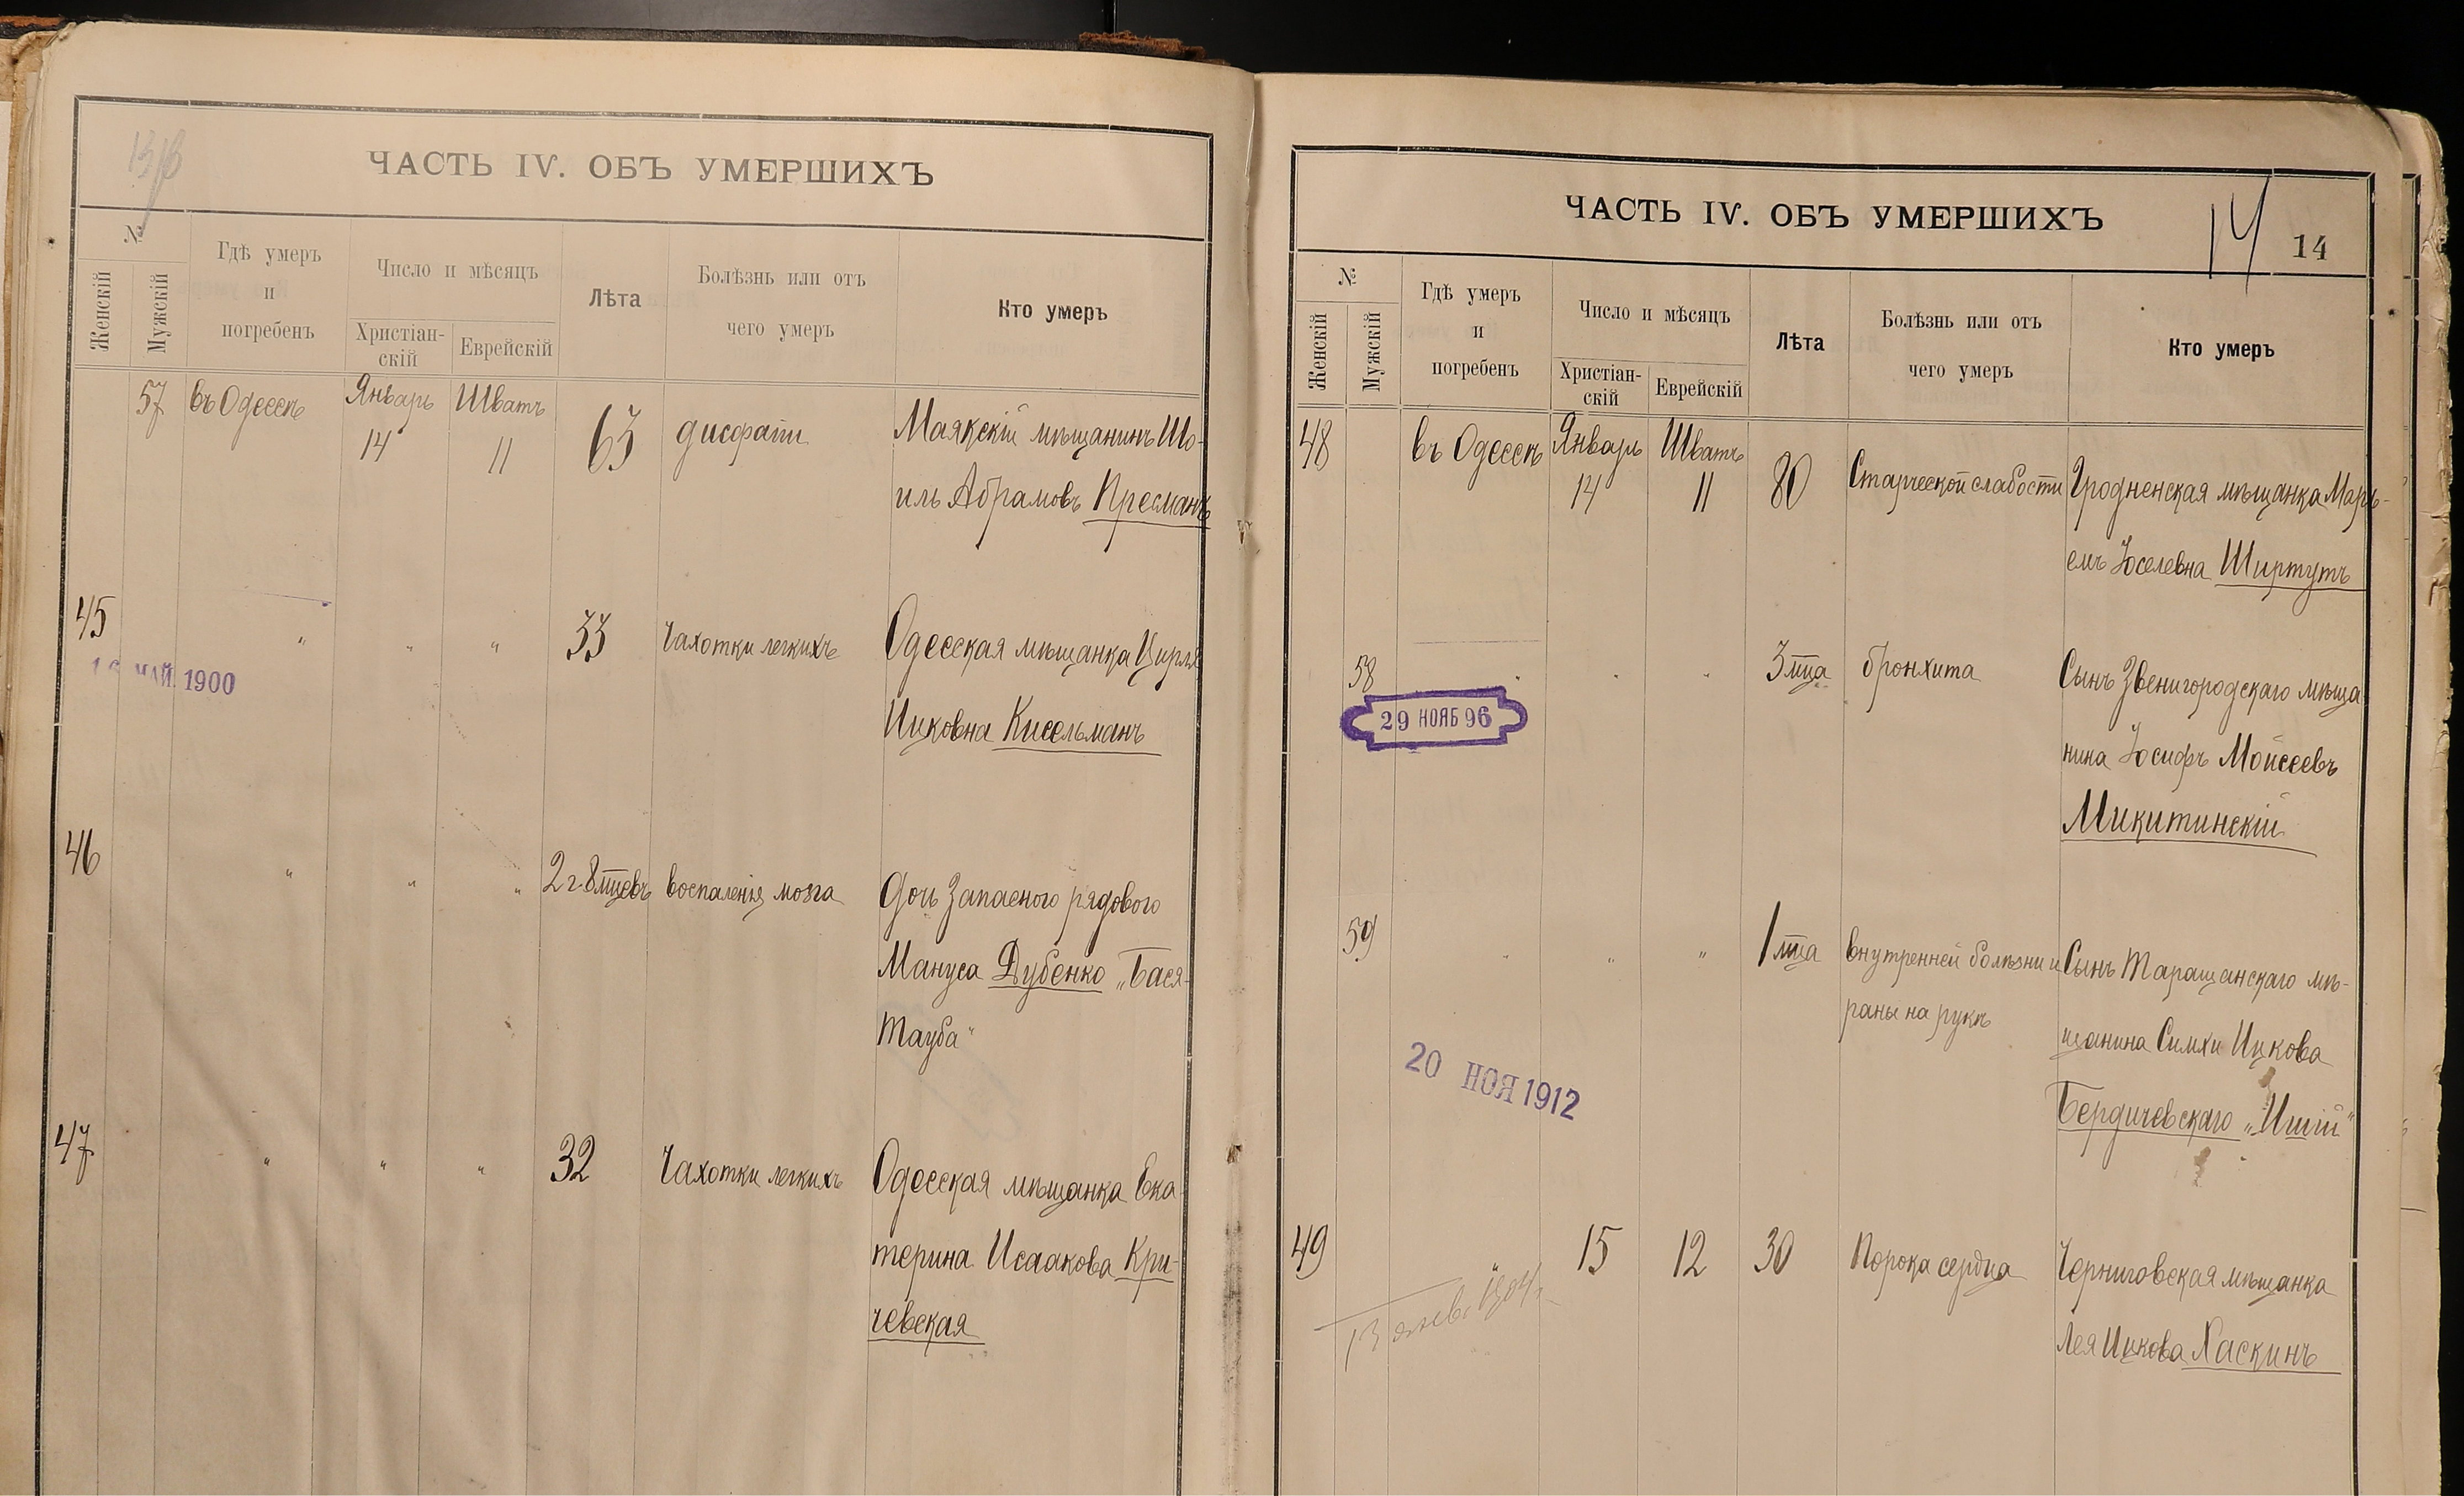 ЧАСТЬ IV. ОБЪ УМЕРШИХЪ
№
Женскій
Мужскій
Гдѣ умеръ
и
погребенъ
Число и мѣсяцъ
Христіан-
скій
Еврейскій
Лѣта
Болѣзнь или отъ
чего умеръ
Кто умеръ
57 въ Одессѣ Январь 14 Шватъ 11 63
Маякскій мѣщанинъ Шо-
иль Абрамовъ Пресманъ
45 " " " 33 Чахотки легкихъ Одесская мѣщанка Цирля
МАЙ 1900
Ицковна Кисельманъ
46 " " " 2 г. 8 мцевъ воспаленія мозга Дочь запасного рядового
Мануса Дубенко „Бася-
Тауба"
47 " " " 32 Чахотки легкихъ Одесская мѣщанка Ека
терина Исаакова Кри-
чевская
ЧАСТЬ IV. ОБЪ УМЕРШИХЪ
14 14
№
Женскій
Мужскій
Гдѣ умеръ
и
погребенъ
Число и мѣсяцъ
Христіан-
скій
Еврейскій
Лѣта
Болѣзнь или отъ
чего умеръ
Кто умеръ
48 въ Одессѣ Январь 14 Шватъ 11 80 Старческой слабости Гродненская мѣщанка Марь-
емъ Іоселевна Ширтутъ
58 " " " 3 мца бронхита Сынъ Звенигородскаго мѣща
29 НОЯБ 96
нина Іосифъ Моисеевъ
Микитинскій
59 " " " 1 мца внутренней болѣзни и Сынъ Таращанскаго мѣ-
раны на рукѣ щанина Симхи Ицкова
20 НОЯ 1912
Бердичевскаго „Иший"
49 " 15 12 30 Порока сердца Черниговская мѣщанка
Лея Ицкова Хаскинъ